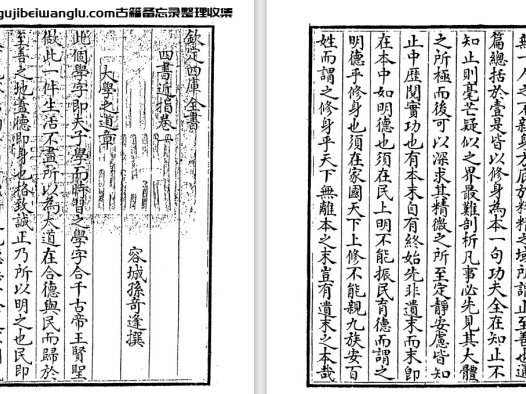 gujibeiwanglu.com古籍备忘录整理收集
欽定四庫全書
四書近指卷一
容城孫奇逢撰
大學之道章
此個學字即夫子學而時習之學字合千古帝王賢聖
做此一件生活不盡所以為大道在合德與民而歸於
至善之地蓋德即身也格致誠正乃所以明之也民即
無一人之不新身方底於精精之域所謂止至善也通
篇總括於壹是皆以修身為本一句功夫全在知止不
知止則毫芒疑似之界最難剖析凡事必先見其大體
之所極而後可以深求其精微之所至定靜安慮皆知
止中歷閱實功也有本末自有終始先非遺末而末即
在本中如明德也須在民上明不能振民育德而謂之
明德乎修身也須在家國天下上修不能親九族安百
姓而謂之修身乎天下無離本之末豈有遺末之本哉